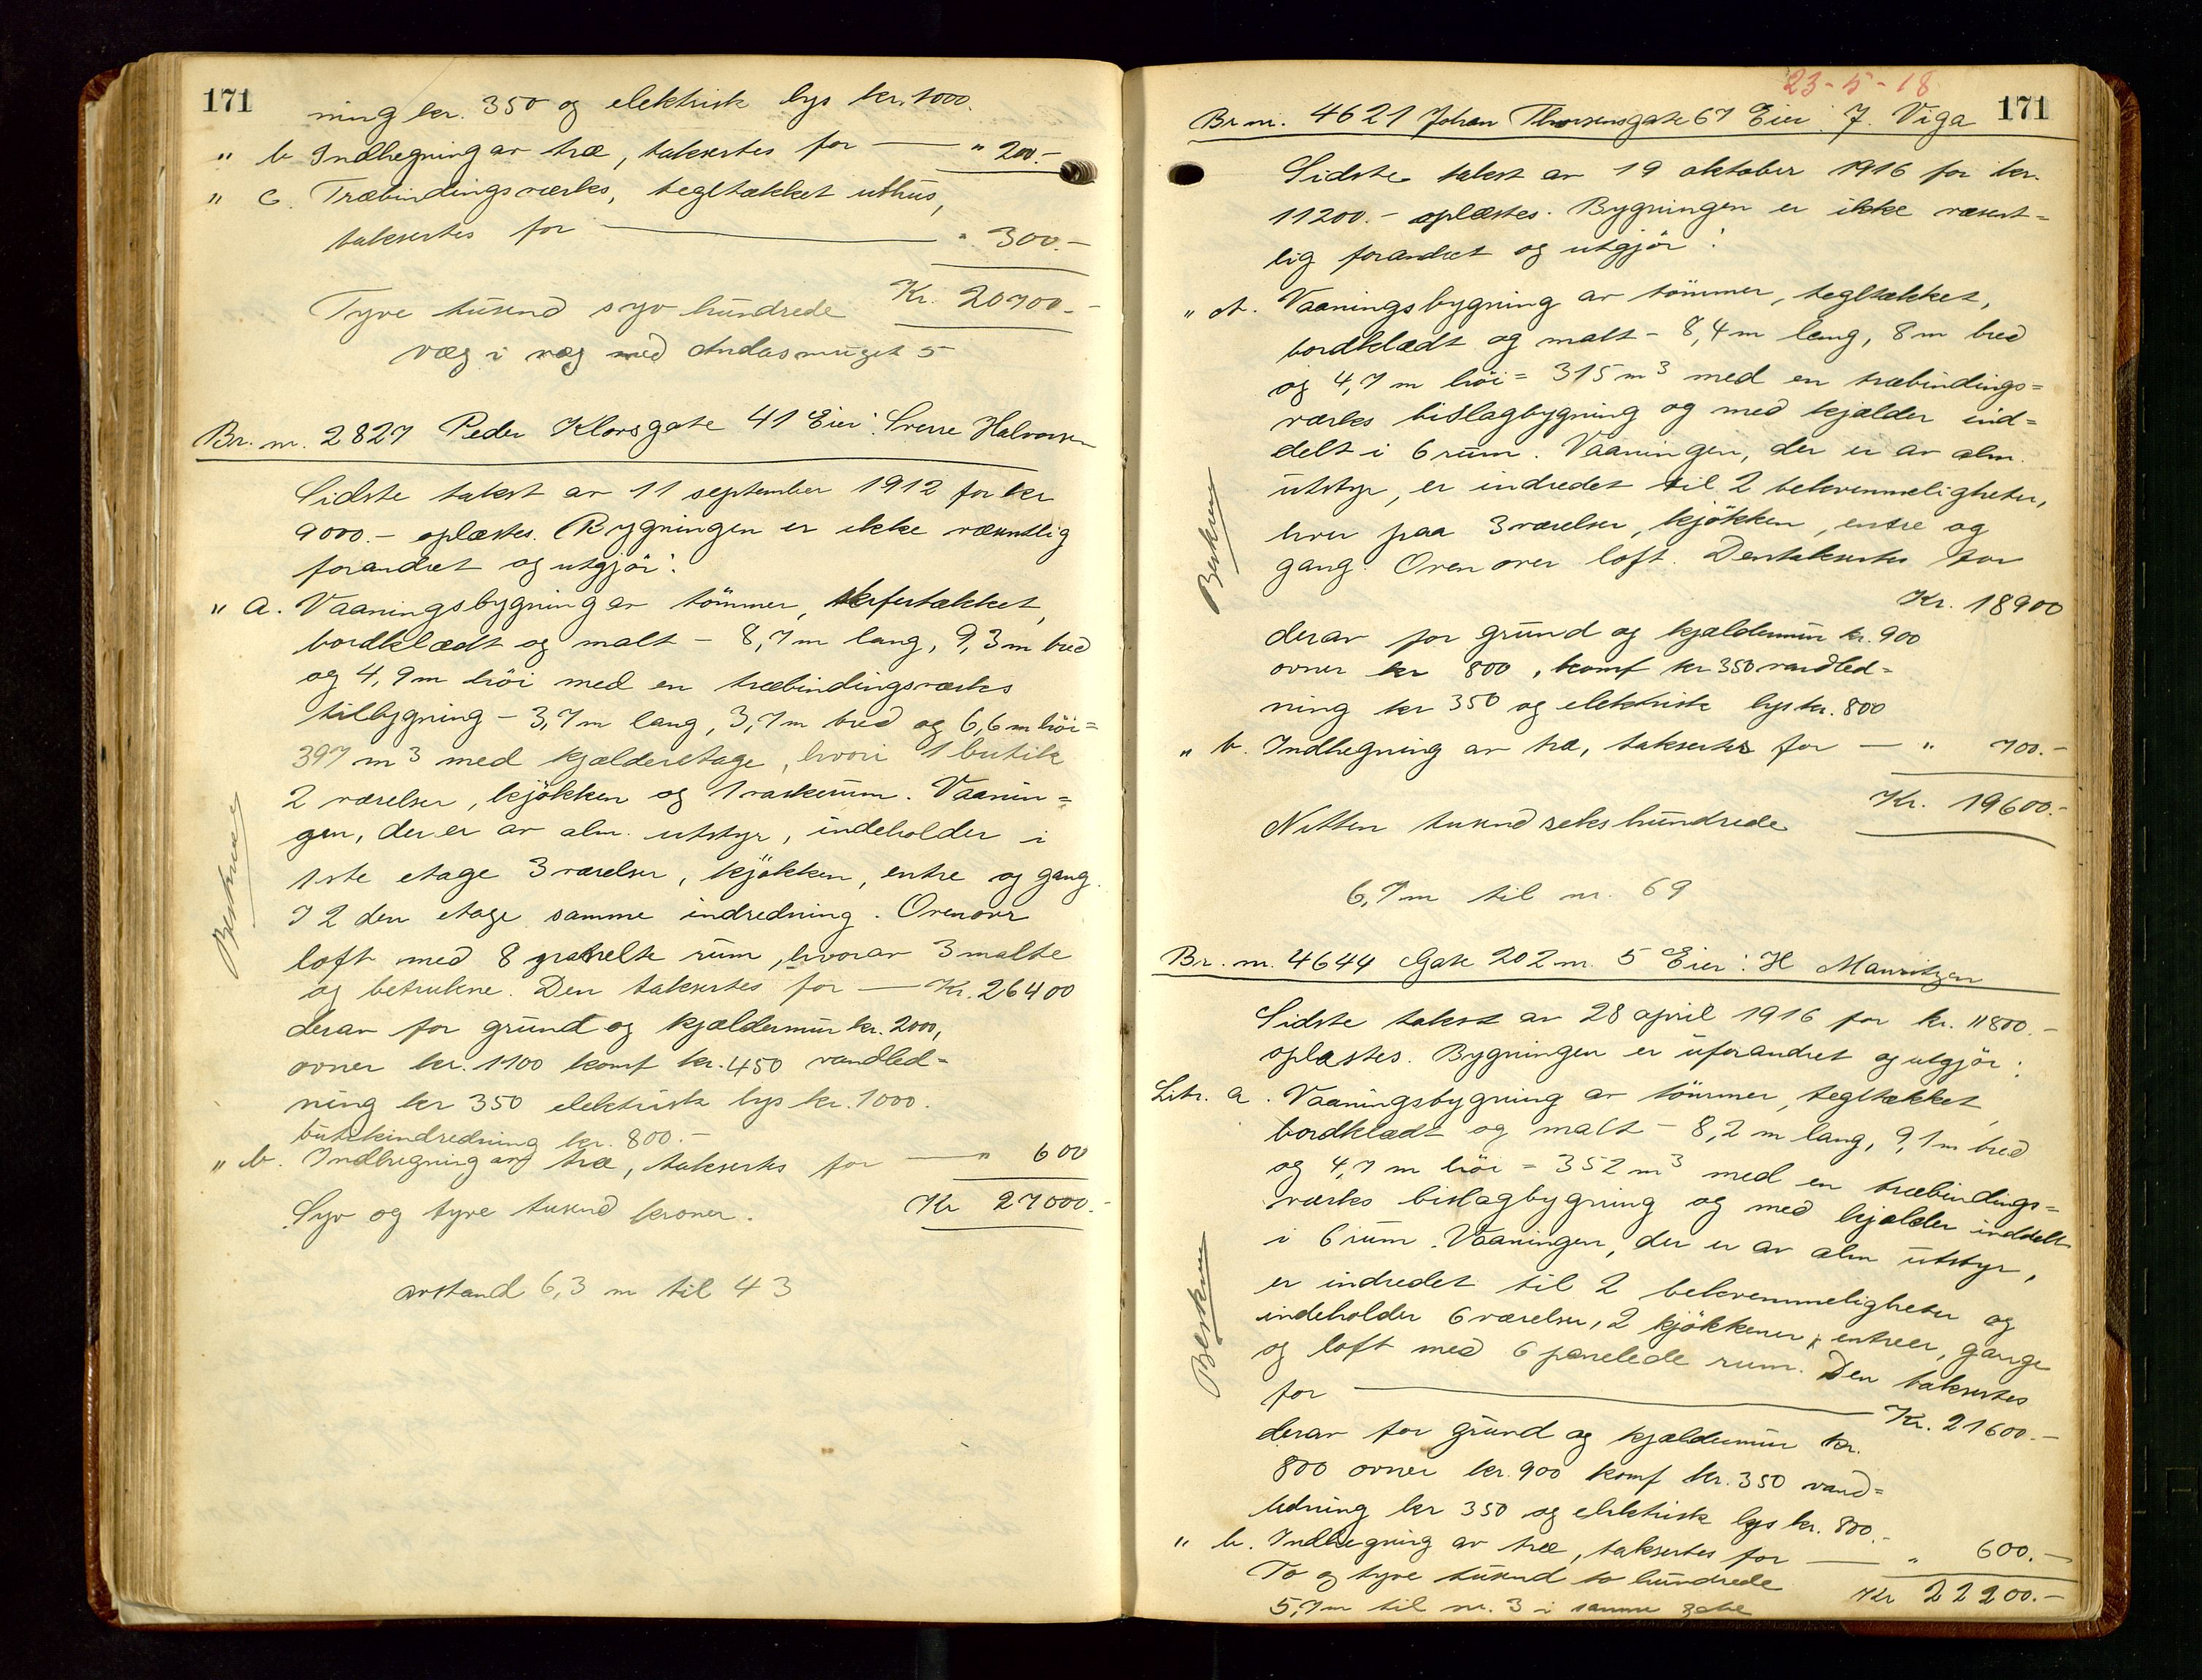 171
ning kr. 350 og elektrisk lys kr. 1000.
" b Indhegning av træ, taksertes for — " 200.-
" c. Træbindingsverks, tegltækket uthus,
taksertes for — " 300.-
Kr. 20700.-
Tyve tusend syv hundrede
væg i væg med Andasmuget 5
Br. nr. 2827 Peder Klowsgate 41 Eier: Sverre Halvorsen
Sidste takst av 11 september 1912 for kr
9000.- oplæstes. Bygningen er ikke væsentlig
forandret og utgjör:
" a. Vaaningsbygning av tömmer, skifertækket,
bordklædt og malt - 8,7 m lang, 9,3 m bred
og 4,9 m höi med en træbindingsverks
tilbygning - 3,7 m lang, 3,7 m bred og 6,6 m höi =
397 m3 med kjælderetage, hvori 1 butik
2 værelser, kjökken og 1 vaskerum. Vaanin=
gen, der er av alm. utstyr, indeholder i
1ste etage 3 værelser, kjökken, entre og gang.
I 2den etage samme indredning. Ovenover
loft med 8 panelte rum, hvorav 3 malte
og betrukne. Den taksertes for — Kr. 26400
derav for grund og kjældermur kr. 2000,
ovner kr. 1100 komf kr. 450 vandled=
ning kr 350 elektrisk lys kr. 1000.
butikindredning kr. 800.-
" b. Indhegning av træ, taksertes for — " 600
Kr 27000.-
Syv og tyve tusend kroner.
avstand 6,3 m til 43
Beskrev
23-5-18
171
Br nr. 4621 Johan Thorsensgate 67 Eier: J. Viga
Sidste takst av 19 oktober 1916 for kr.
11200.- oplæstes. Bygningen er ikke væsent=
lig forandret og utgjör:
" A. Vaaningsbygning av tömmer, tegltækket,
bordklædt og malt - 8,4 m lang, 8 m bred
og 4,7 m höi = 315 m3 med en træbindings=
værks bislagbygning og med kjælder ind=
delt i 6 rum. Vaaningen, der er av alm.
utstyr, er indredet til 2 bekvemmeligheter,
hver paa 3 værelser, kjökken, entre og
gang. Ovenover loft. Den taksertes for
Kr. 18900
derav for grund og kjældermur kr. 900
ovner kr 800, komf kr 350 vandled=
ning kr 350 og elektrisk lys kr. 800
" b. Indhegning av træ, taksertes for — " 700.-
Kr. 19600.-
Nitten tusend sekshundrede
6,7 m til nr. 69
Beskrev
Br. nr. 4644 Gate 202 nr. 5 Eier: H Mauritzen
Sidste takst av 28 april 1916 for kr. 11800.-
oplæstes. Bygningen er uforandret og utgjör:
Litr. a. Vaaningsbygning av tömmer, tegltækket,
bordklædt og malt - 8,2 m lang, 9,1 m bred
og 4,7 m höi = 352 m3 med en træbindings=
værks bislagbygning og med kjælder inddelt
i 6 rum. Vaaningen, der er av alm utstyr,
er indredet til 2 bekvemmeligheter og
indeholder 6 værelser, 2 kjökkener, entreer, gange
og loft med 6 panelede rum. Den taksertes
for — Kr. 21600.-
derav for grund og kjældermur kr.
800 ovner kr. 900 komf kr. 350 vand=
ledning kr 350 og elektrisk lys kr. 800.-
" b. Indhegning av træ, taksertes for — " 600.-
To og tyve tusend to hundrede
Kr 22200.-
5,7 m til nr. 3 i samme gate
Beskrev